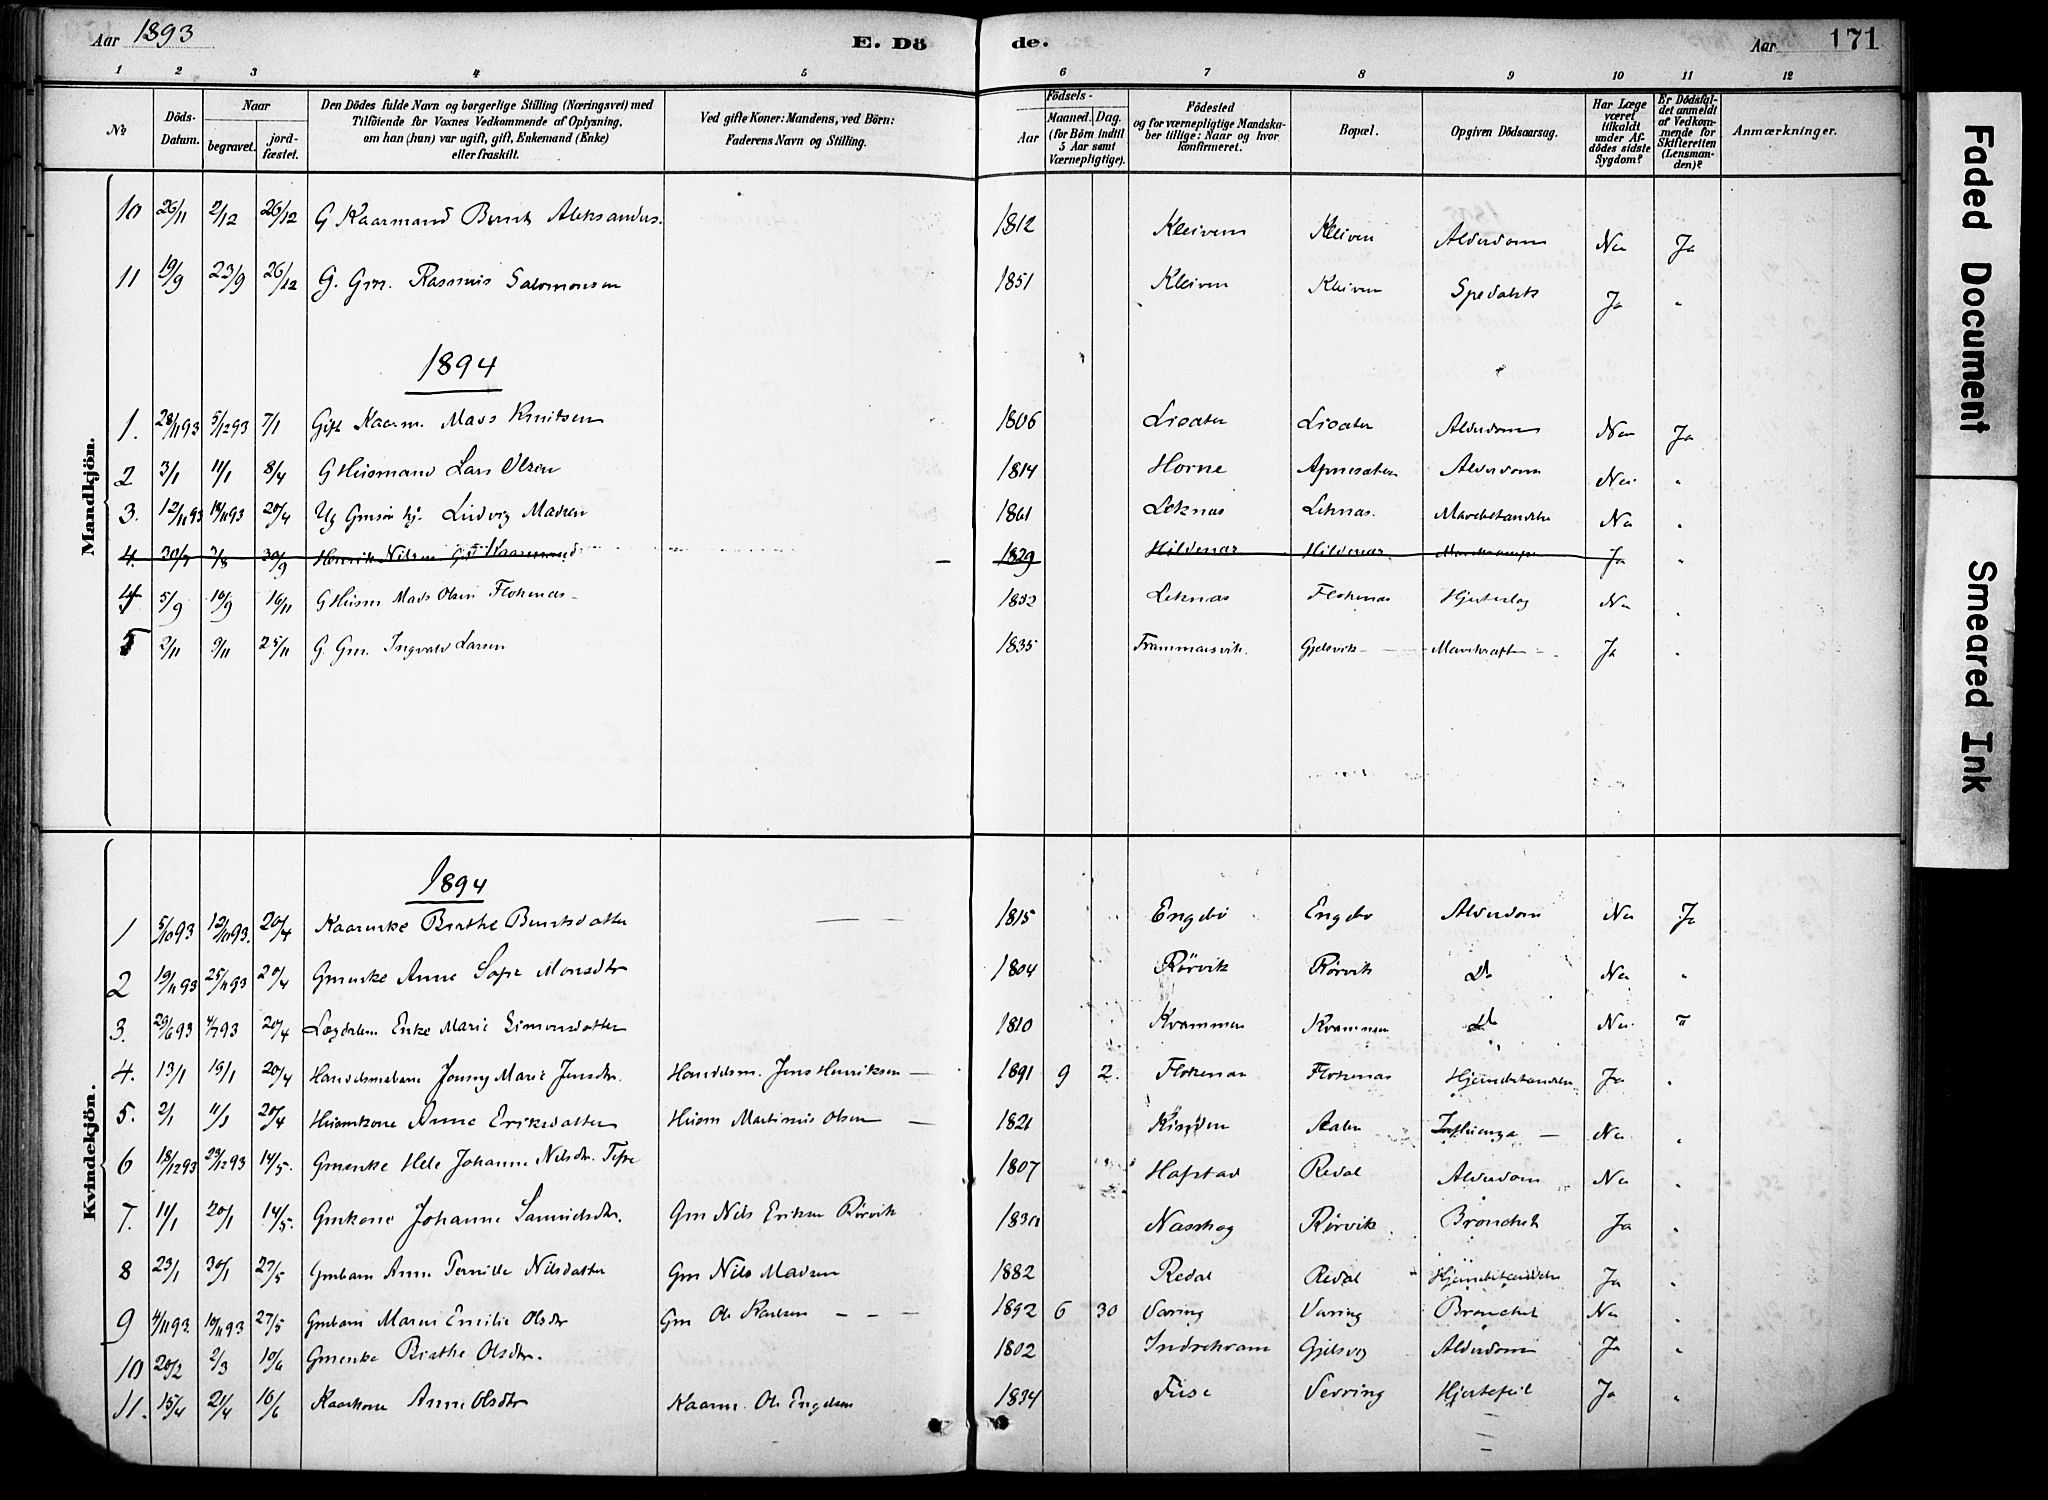 Aar 1893
E. Dö
de.
Aar 171
1 2 3 4 5 6 7 8 9 10 11 12
№
Döds-Datum.
Naar
begravet.
jord-fæstet.
Den Dödes fulde Navn og borgerlige Stilling (Næringsvei) med
Tilföiende for Voxnes Vedkommende af Oplysning,
om han (hun) var ugift, gift, Enkemand (Enke)
eller fraskilt.
Ved gifte Koner: Mandens, ved Börn:
Faderens Navn og Stilling.
Födsels-
Aar
Maaned. Dag.
(for Börn indtil
5 Aar samt
Værnepligtige).
Födested
og for værnepligtige Mandska-
ber tillige: Naar og hvor
konfirmeret.
Bopæl.
Opgiven Dödsaarsag.
Har Læge
været
tilkaldt
under Af-
dödes sidste
Sygdom?
Er Dödsfal-
det anmeldt
af Vedkom-
mende for
Skifteretten
(Lensman-
den)?
Anmærkninger.
Mandkjön.
10 26/11 2/12 26/12 G Kaarmand Bernt Aleksanders. 1812 Kleiven Kleiven Alderdom Nei Ja
11 19/9 23/9 26/12 G. Gm. Rasmus Salomonsen 1851 Kleiven Kleiven Spedalsk Ja "
1894
1. 28/11 93 5/12 93 7/1 Gift Kaarm. Mads Knutsen 1806 Lisæter Lisæter Alderdom Nei Ja
2 3/1 11/1 8/4 G Husmand Lars Olsen 1814 Horne Alderdom Nei "
3. 12/11 93 18/11 93 20/4 Ug Gmsøn Ludvig Madsen 1861 Leknas Leknas. Nei "
4. 30/7 3/8 30/9 Henrik Nilsen Gift Kaarmand 1829 Hildenas Hildenas Ja "
4 5/9 10/9 16/11 G Husm Mads Olsen Flokenas 1832 Leknas Flokenas Hjerteslag Nei "
5 2/11 9/11 25/11 G. Gm. Ingvald Larsen 1835 Frammarsvik. Gjelsvik Mavekræft Ja "
Kvindekjön.
1894
1 5/10 93 12/10 93. 20/4 Kaarenke Birthe Berntsdatter 1815 Engebø Engebø Alderdom Nei Ja
2 19/11 93 25/11 93 20/4 Gmenke Anne Sofie Monsdtr 1804 Rørvik Rørvik Do Nei "
3. 29/6 93 4/7 93 20/4 Lægdslem Enke Marie Simonsdatter 1810 Kvammen Kvammen Do Nei "
4. 13/1 19/1 20/4 Handelsmsbarn Jenny Marie Jensdtr. Handelsm. Jens Henriksen 1891 9 2. Flokenas Flokenas Hjernebetændelse Ja "
5. 2/1 11/1 20/4 Husmkone Anne Eriksdatter Husm Martinus Olsen 1821 Influenza Nei "
6 18/12 93 29/12 93 14/5. Gmenke Hele Johanne Nilsdtr. 1807 Hafstad Redal Alderdom Nei "
7. 11/1 20/1 14/5. Gmkone Johanne Samuelsdtr. Gm Nils Eriksen Rørvik 1830 Nasskog Rørvik. Bronchit Ja "
8 23/1 30/1 27/5 Gmbarn Anne Pernille Nilsdatter Gm Nils Madsen 1882 Redal Redal Hjernebetændelse Ja "
9 4/11 93. 10/11 93 27/5 Gmbarn Maren Emilie Olsdtr Gm Ole Karlsen 1892 6 30 Varing Varing Bronchit Nei "
10 20/2 2/3 10/6 Gmenke Birthe Olsdtr. 1802 Indrekvam Gjelsvig Alderdom Ja "
11. 15/4 21/4 10/6 Kaarkone Anne Olsdtr Kaarm. Ole Engelsen 1834 Fuse Verring Hjertefeil Ja "
Faded Document
Smeared Ink